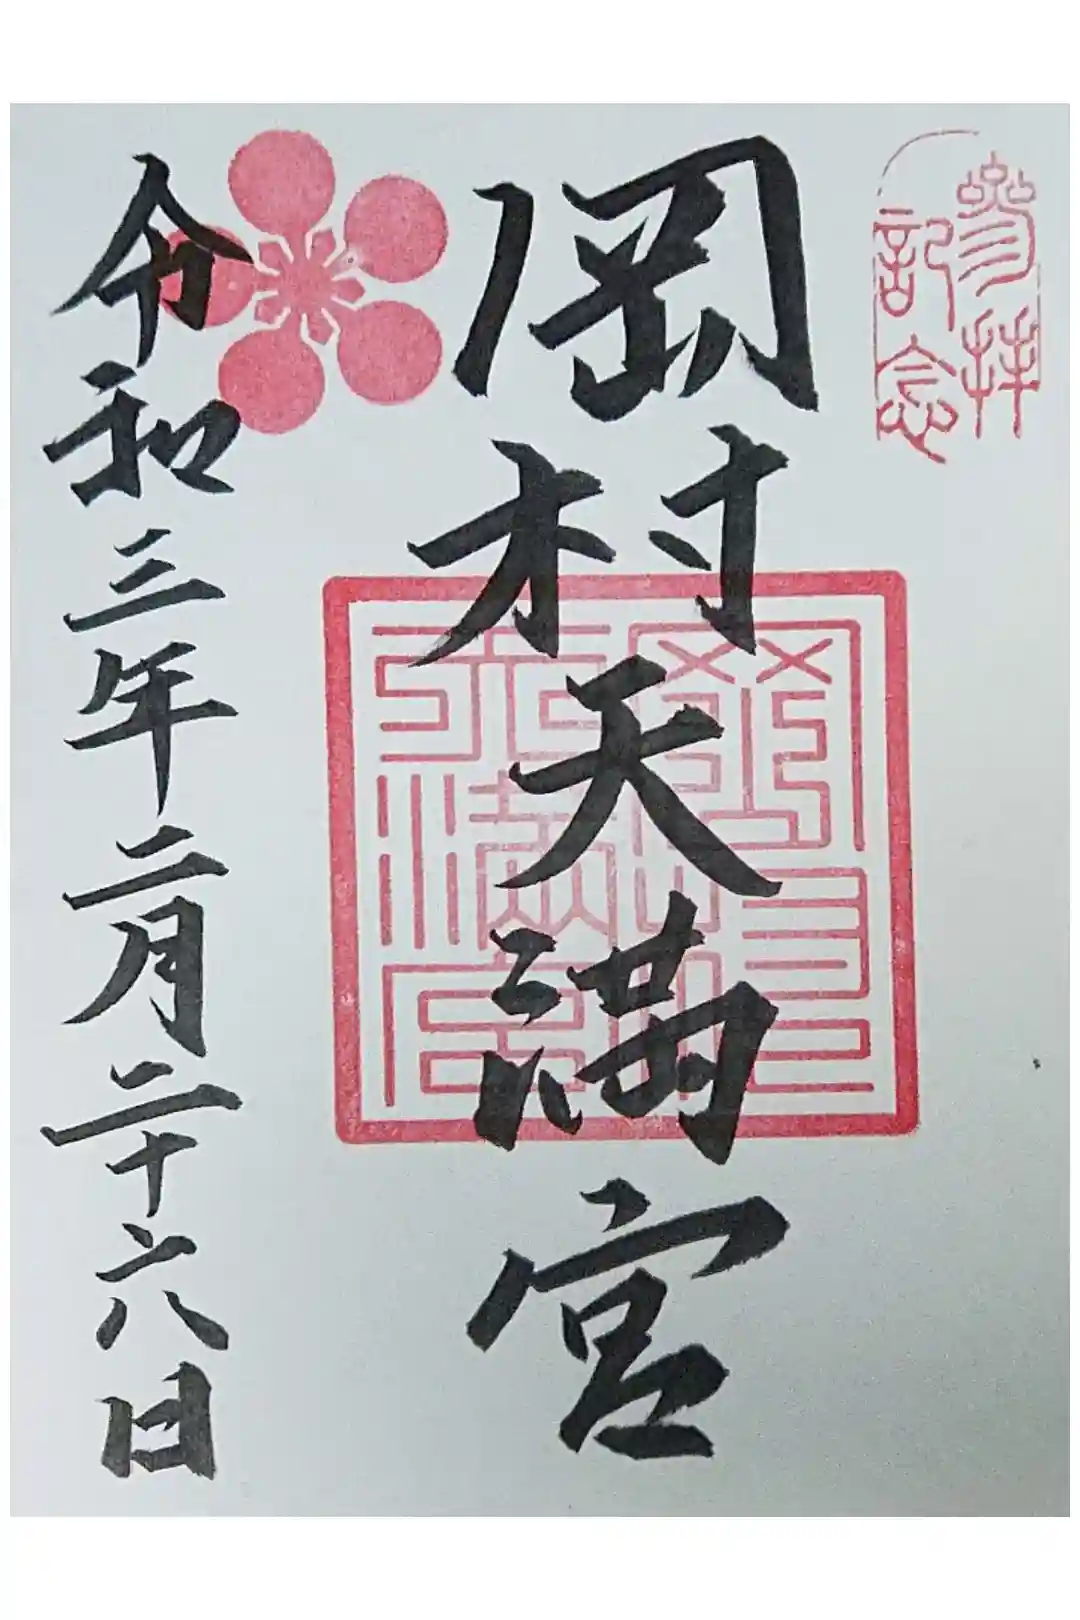 参拝
記念
岡村天満宮
令和三年二月二十六日